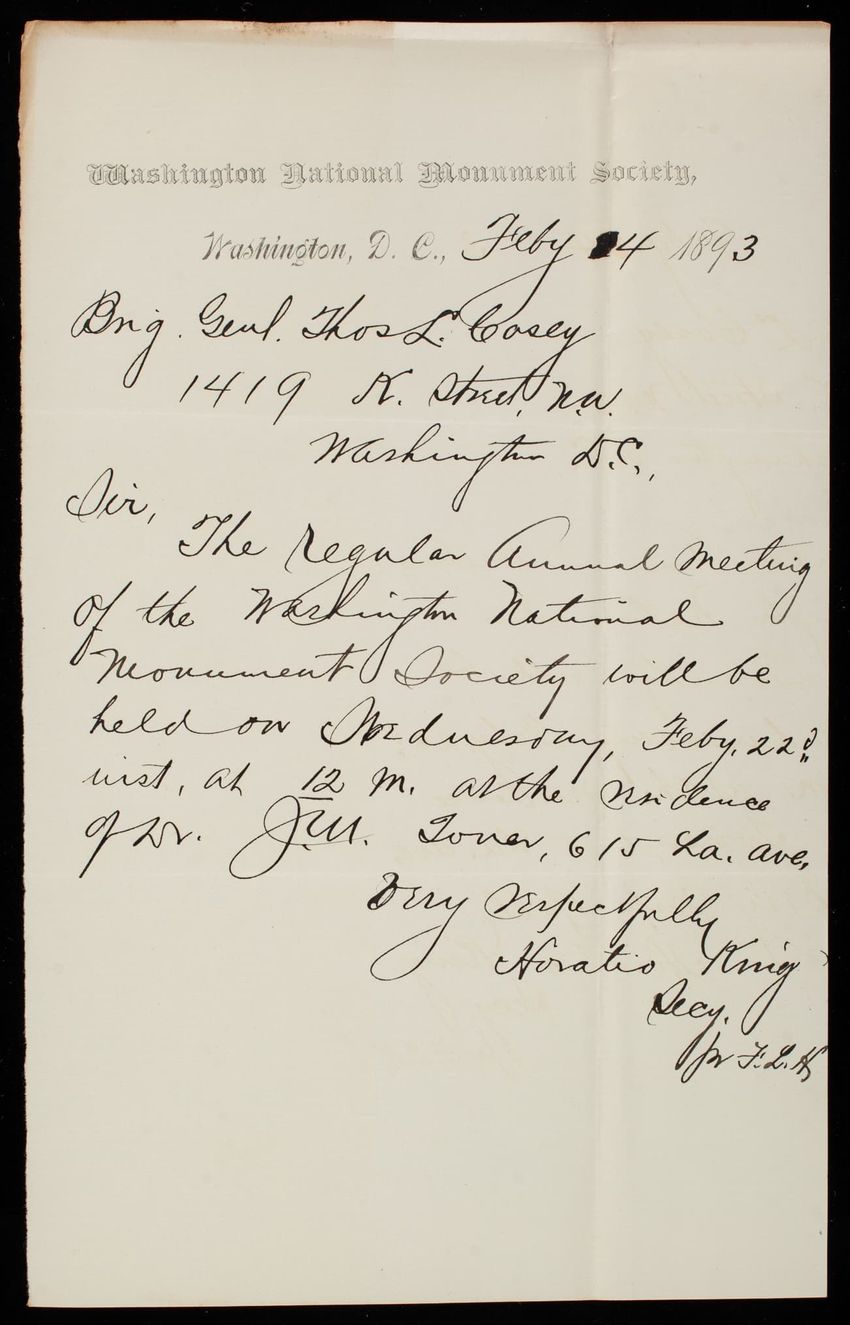 Washington National Monument Society,
Washington, D. C., Feby 14 1893
Brig. Genl. Thos L. Casey
1419 K. Street, N.W.
Washington D.C.,
Sir,
The regular Annual Meeting
of the Washington National
Monument Society will be
held on Wednesday, Feby. 22d
inst, at 12 M. at the residence
of Dr. J.M. Toner, 615 La. ave,
Very respectfully
Horatio King
Secy.
pr F.L.H